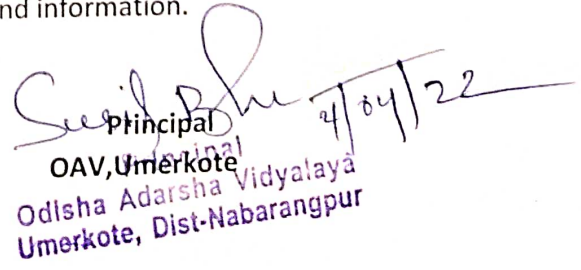 nd information.
4/04/22
Principal
OAV,Umerkote
Principal
Odisha Adarsha Vidyalaya
Umerkote, Dist-Nabarangpur